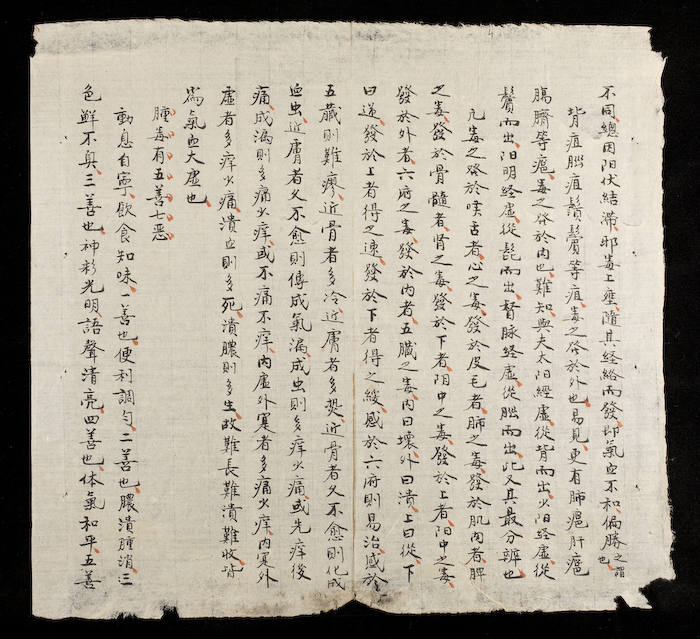 不同總因阳伏結滯邪毒上壅隨其经絡而發即氣血不和偏勝之謂也
背疽腦疽鬚鬢等疽毒之發於外也易見更有肺癰肝癰
腸臍等癰毒之發於内也難知與夫太阳經虛從背而出少阳經虛從
鬢而出阳明经虛從髭而出督脉经虛從腦而出此又其最分辨也
凢毒之發於喉舌者心之毒發於皮毛者肺之毒發於肌肉者脾
之毒發於骨髓者肾之毒發於下者阴中之毒發於上者阳中之毒
發於外者六府之毒發於内者五臟之毒内曰壞外曰潰上曰從下
曰逆發於上者得之速發於下者得之緩感於六府則易治感於
五臟則難瘳近骨者多冷近膚者多热近骨者久不愈則化成
血虫近膚者久不愈則傳成氣漏成虫則多痒少痛或先痒後
痛成漏則多痛少痒或不痛不痒内虛外寔者多痛少痒内寔外
虛者多痒少痛潰血則多死潰膿則多生故難長難潰難收皆
為氣血大虛也
腫毒有五善七恶
動息自寧飲食知味一善也便利調匀二善也膿潰腫消三
色鲜不臭三善也神彩光明語聲清亮四善也体氣和平五善